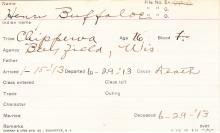 File No.
Name Henry Buffalo
Indian name
Tribe Chippewa Age 16 Blood
Agency Bayfield, Wis
Father
Arrived -15-'13 Departed 6-29-'13 Cause Death
Class entered Class left
Trade Outing
Character
Married Deceased 6-29-'13
Remarks OVER